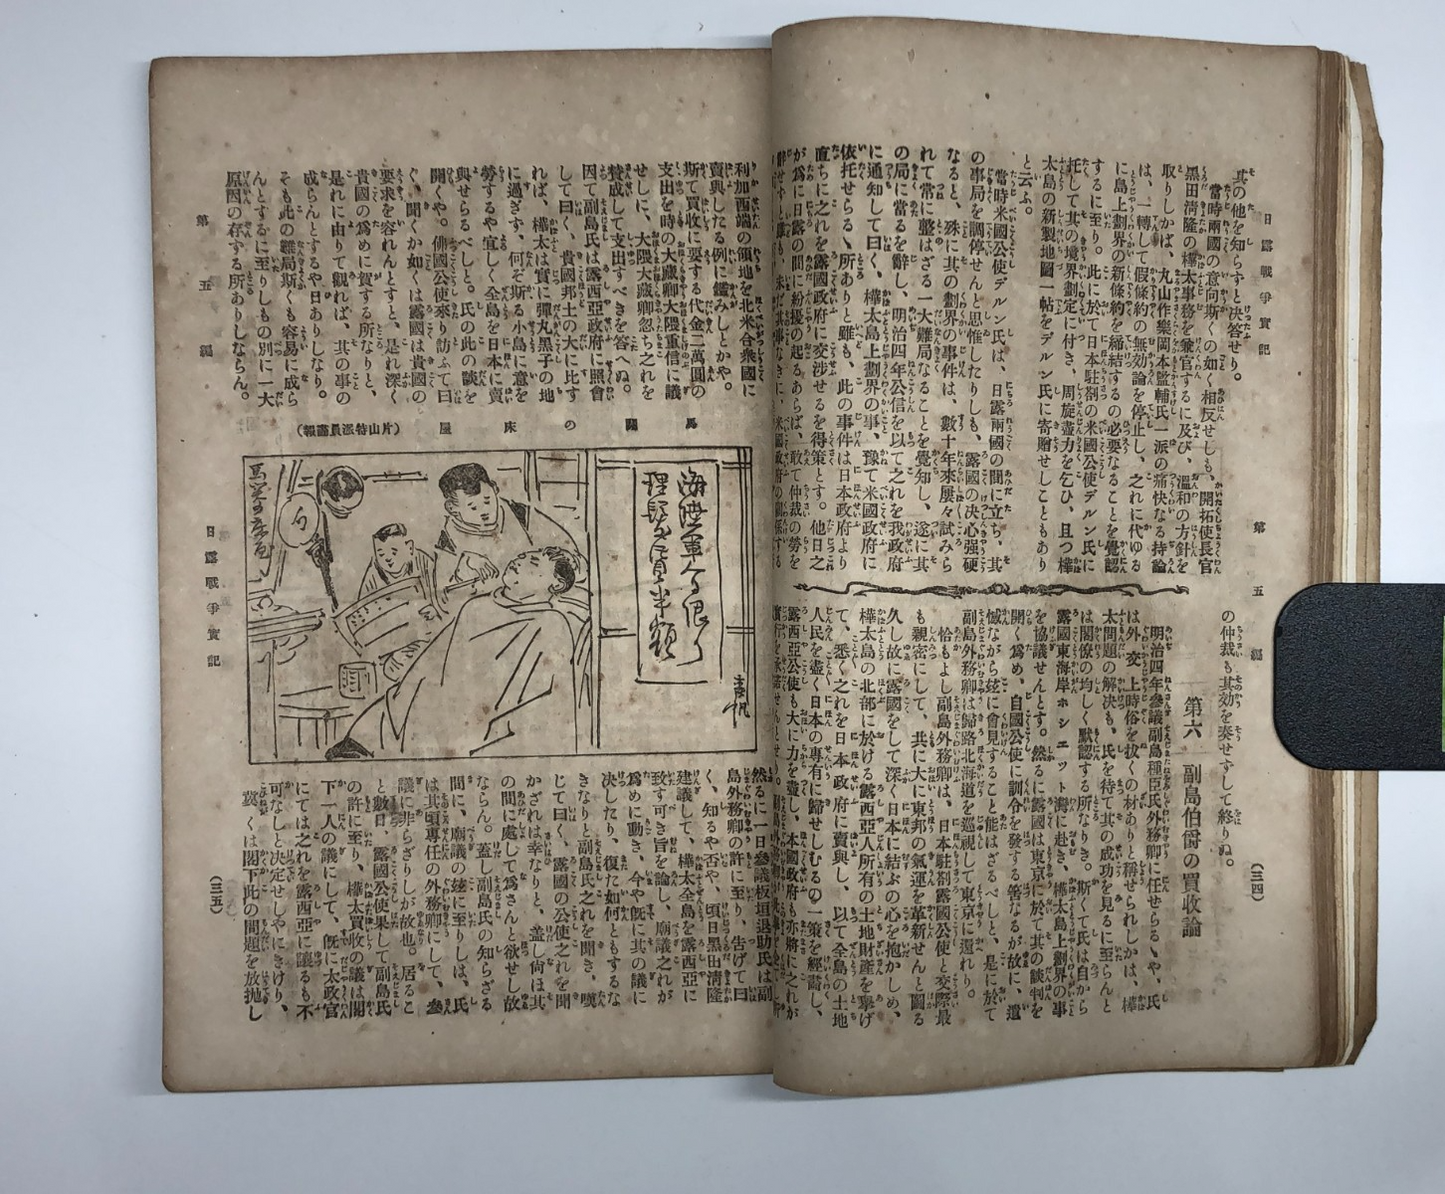 日露戰爭實記
第五編
(三四)
其の他を知らずと決答せり。
當時兩國の意向斯くの如く相反せしも、開拓使長官
黒田淸隆の樺太事務を兼官するに及び、溫和の方針を
取りしかば、丸山作樂岡本監輔氏一派の痛快なる持論
は、一轉して假條約の無効論を停止し、之れに代ゆる
に島上劃界の新條約を締結するの必要なることを覺認
するに至り。此に於て日本駐剳の米國公使デルン氏に
托して其の境界劃定に付き、周旋盡力を乞ひ、且つ樺
太島の新製地圖一帖をデルン氏に寄贈せしこともあり
と云ふ。
當時米國公使デルン氏は、日露兩國の間に立ち、其
の事局を調停せんと思惟したりしも、露國の決心强硬
なると、殊に其の劃界の事件は、數十年來屢々試みら
れて常に整はざる一大難局なることを覺知し、遂に其
の局に當るを辭し、明治四年公信を以て之れを我政府
に通知して曰く、樺太島上劃界の事、豫て米國政府に
依托せらるゝ所ありと雖も、此の事件は日本政府より
直ちに之れを露國政府に交渉せるを得策とす。他日之
が爲に日露の間に紛擾の起るあらば、敢て仲裁の勞を
の仲裁も其効を奏せずして終りぬ。
第六 副島伯爵の買收論
明治四年參議副島種臣氏外務卿に任せらるゝや、氏
は外交上時俗を拔くの材ありと稱せられしかは、樺
太問題の解決も、氏を待て其の成功を見るに至らんと
は閣僚の均しく默認する所なりき。斯くて氏は自から
露國東海岸ホシエット灣に赴き、樺太島上劃界の事
を協議せんとす。然るに露國は東京に於て其の談判を
開く爲め、自國公使に訓令を發する筈なるが故に、遺
憾ながら玆に會見すること能はざるべしと、是に於て
副島外務卿は歸路北海道を巡視して東京に還れり。
恰もよし副島外務卿は、日本駐剳露國公使と交際最
も親密にして、共に大に東邦の氣運を革新せんと圖る
久し故に露國をして深く日本に結ぶの心を抱かしめ、
樺太島の北部に於ける露西亞人所有の土地財產を擧げ
て、悉く之れを日本政府に賣與し、以て全島の土地
人民を盡く日本の專有に歸せしむるの一策を經畵し、
露西亞公使も大に力を盡し、本國政府も亦將に之れが
利加西端の領地を北米合衆國に
賣與したる例に鑑みしとかや。
斯て買收に要する代金二萬圓の
支出を時の大藏卿大隈重信に議
せしに、大隈大藏卿忽ち之れを
贊成して支出すべきを答へぬ。
因て副島氏は露西亞政府に照會
して曰く、貴國邦土の大に比す
れば、樺太は實に彈丸黒子の地
に過ぎず、何ぞ斯る小島に意を
勞するや宜しく全島を日本に賣
與せらるべしと。氏の此の談を
開くや。佛國公使來り訪ふて曰
く、聞くか如くは露國は貴國の
要求を容れんとすと、是れ深く
貴國の爲めに賀する所なりと、
是れに由りて觀れば、其の事の
成らんとするや日ありしなり。
そも此の難局斯くも容易に成ら
んとするに至りしもの別に一大
原因の存する所ありしならん。
馬關の床屋(片山特派員畵報)
海陸軍人に限り
理髮賃半額
然るに一日參議板垣退助氏は副
島外務卿の許に至り、告げて曰
く、知るや否や、頃日黑田淸隆
建議して、樺太全島を露西亞に
致す可き旨を論し、廟議之れが
爲めに動き、今や旣に其の議に
決したり、復た如何ともするな
きなりと副島氏之れを聞き、嘆
じて曰く、露國の公使之れを聞
かざれは幸なりと、盖し尙ほ其
の間に處して爲さんと欲せし故
ならん。蓋し副島氏の知らざる
間に、廟議の玆に至りしは、氏
は其頃專任の外務卿にして、參
議に非らざりしが故也。居るこ
と數日、露國公使果して副島氏
の許に至り、樺太買收の議は閣
下一人の議にして、旣に太政官
にては之れを露西亞に讓るも不
可なしと決定せしやにきけり、
冀くは閣下此の問題を放抛し
第五編
日露戰爭實記
(三五)